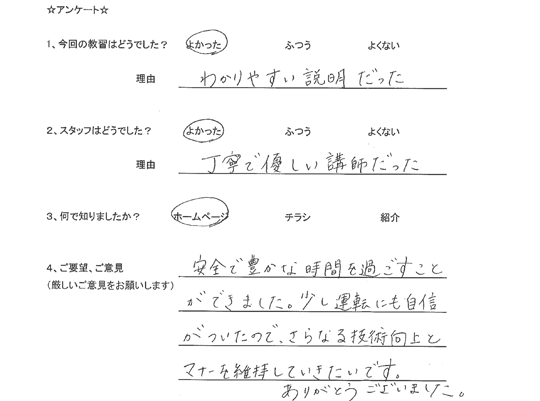 ☆アンケート☆
1、今回の教習はどうでした？ よかった ふつう よくない
理由 わかりやすい説明だった
2、スタッフはどうでした？ よかった ふつう よくない
理由 丁寧で優しい講師だった
3、何で知りましたか？ ホームページ チラシ 紹介
4、ご要望、ご意見 安全で豊かな時間を過ごすこと
(厳しいご意見をお願いします) ができました。少し運転にも自信
がついたので、さらなる技術向上と
マナーを維持していきたいです。
ありがとうございました。